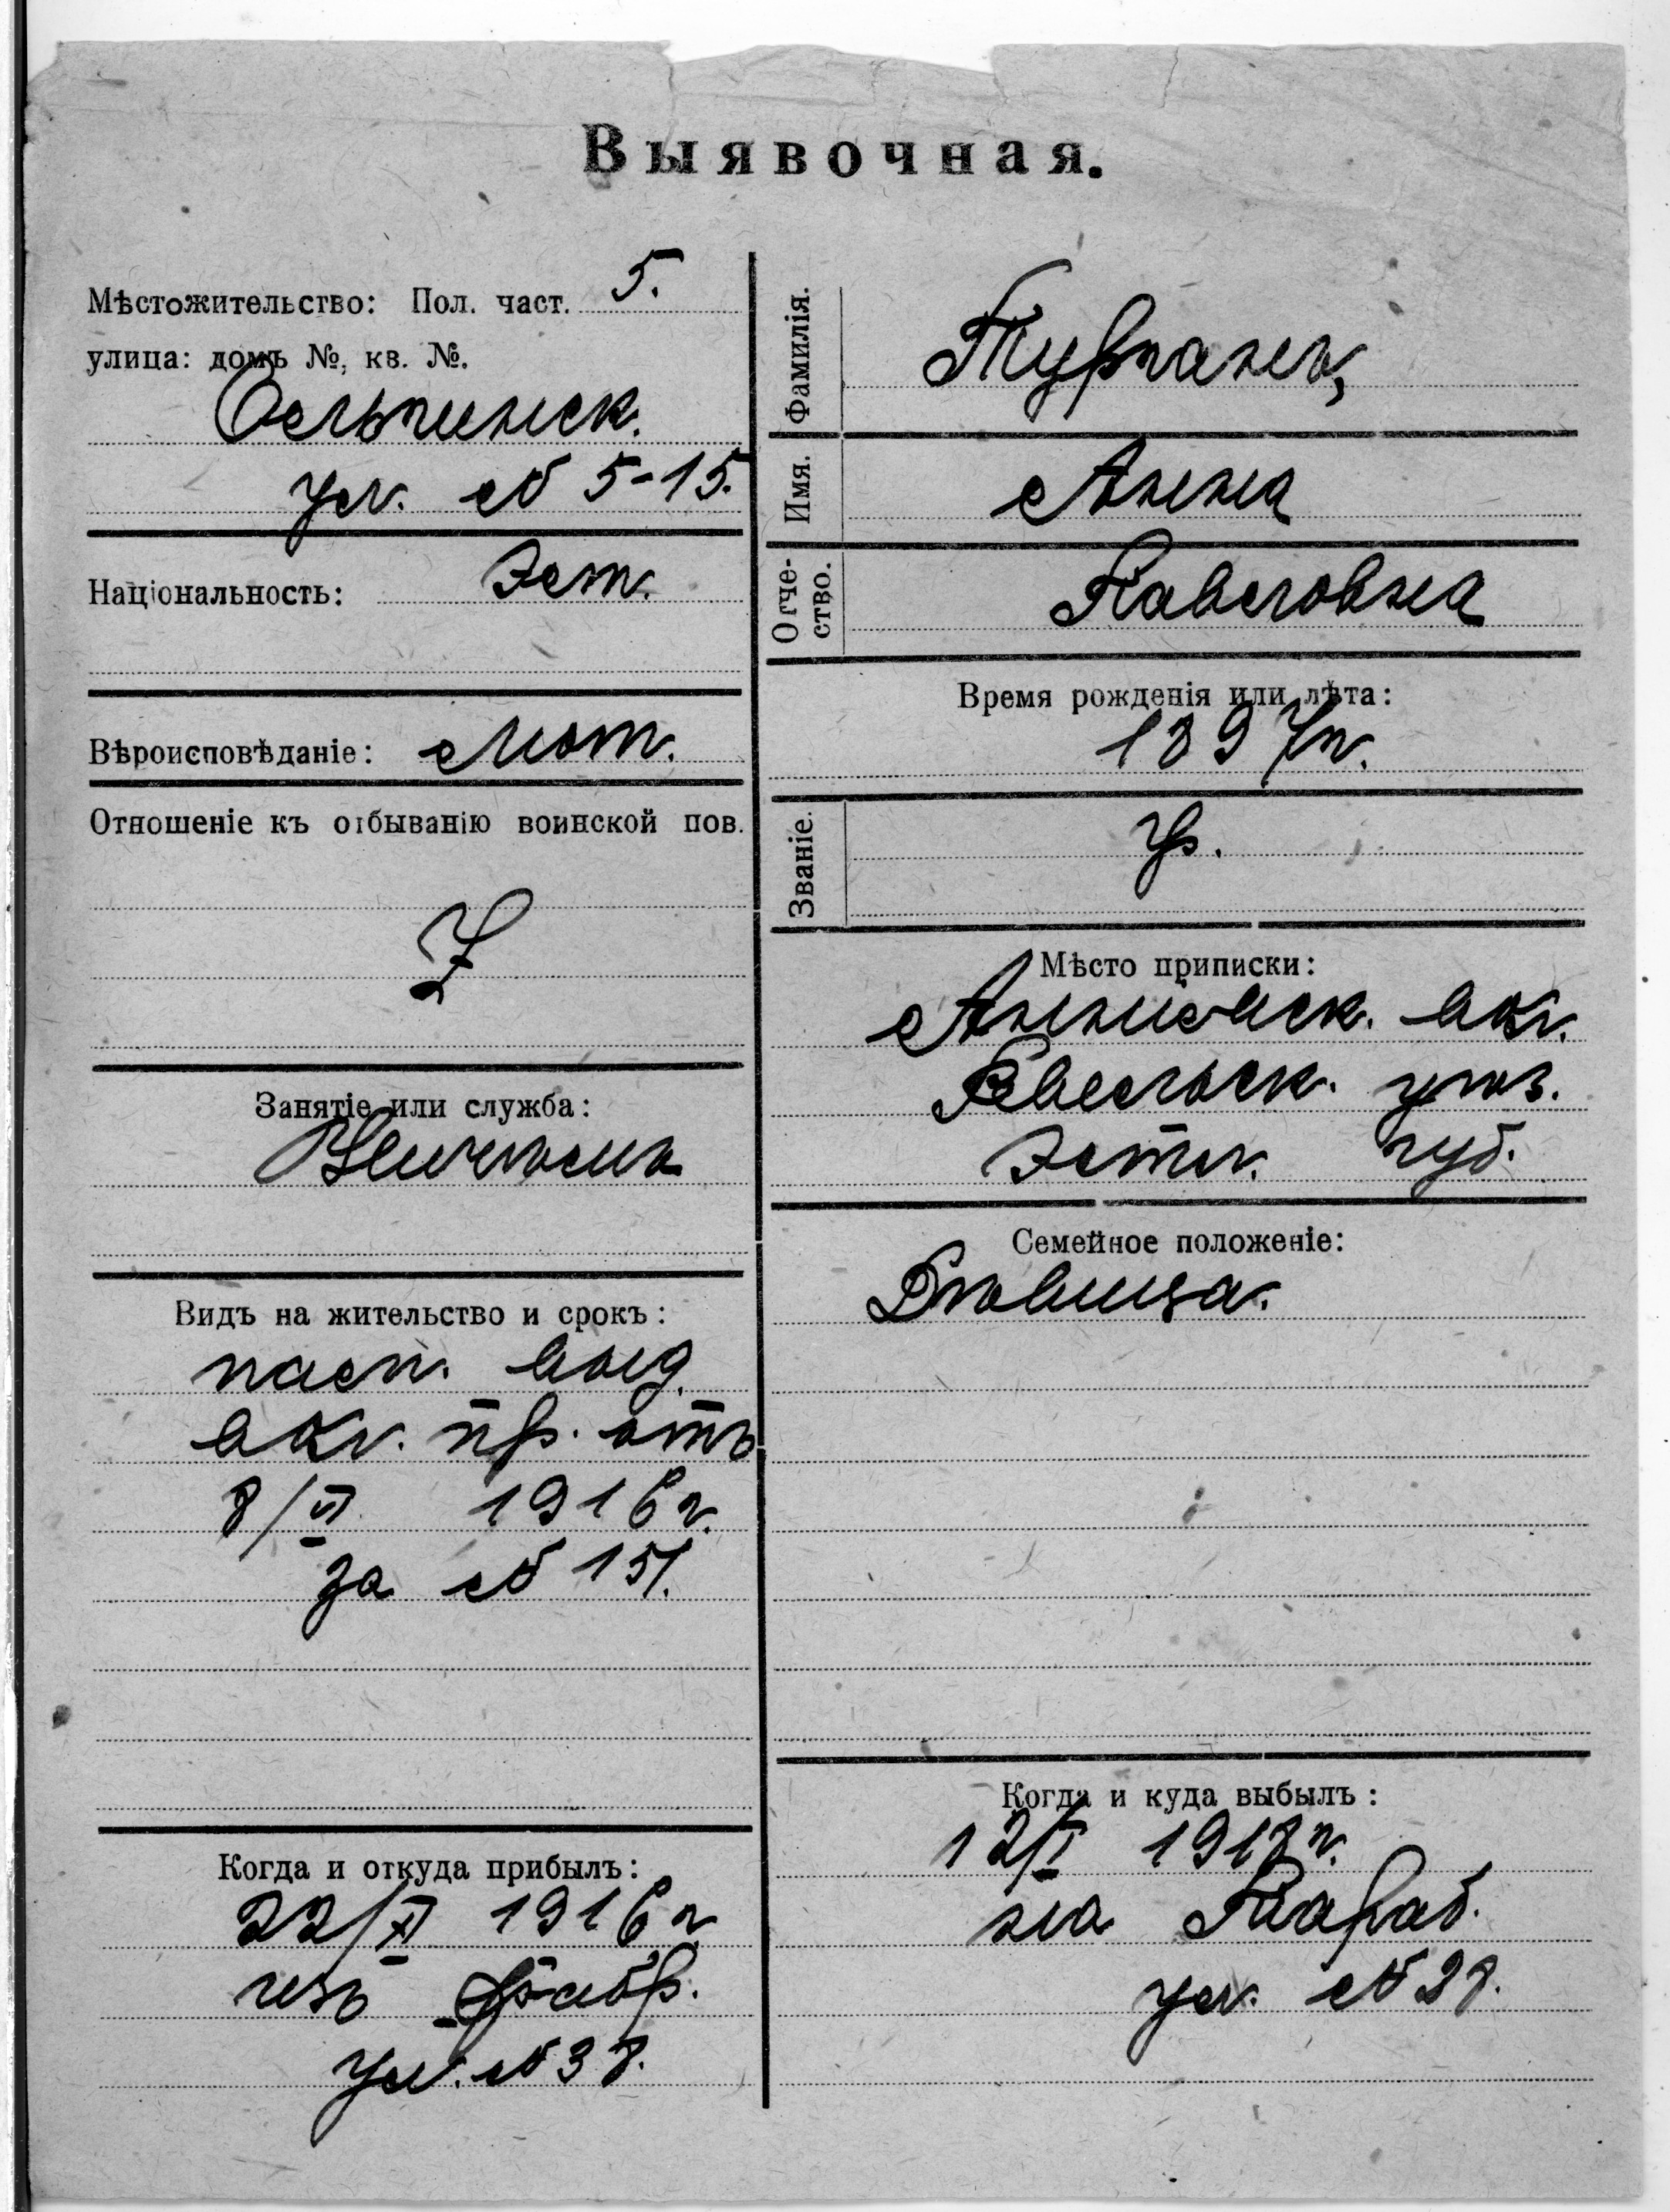 Выявочная.
Мѣстожительство: Пол. част. 5.
улица: домъ №, кв. №.
ул. № 5-15.
Національность: Эст.
Вѣроисповѣданіе: Лют.
Отношеніе къ отбыванію воинской пов.
Занятіе или служба:
Видъ на жительство и срокъ:
пасп. выд.
вол. пр. отъ
8/VI 1916 г.
за № 151.
Когда и откуда прибылъ:
22/XI 1916 г
изъ
ул. № 38.
Фамилія. Турманъ,
Имя. Анна
Отче-
ство. Павловна
Время рожденія или лѣта:
1897 г.
Званіе. Кр.
Мѣсто приписки:
вол.
Ревельск. уѣз.
Эстл. губ.
Семейное положеніе:
Дѣвица.
Когда и куда выбылъ:
12/I 1918 г.
на Параб.
ул. № 28.